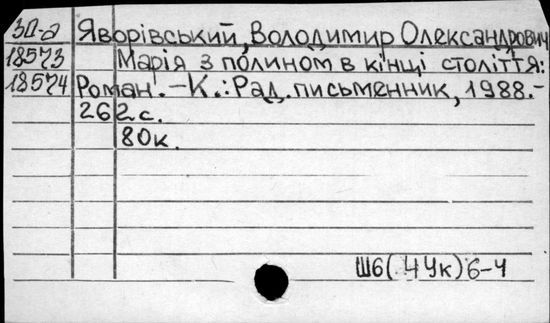 3Д-а Яворівський, Володимир Олександрович
18573 Марія з полином в кінці століття:
18574 Роман. – К.: Рад. письменник, 1988. –
262 с.
80к.
Ш6(4Ук)6-4